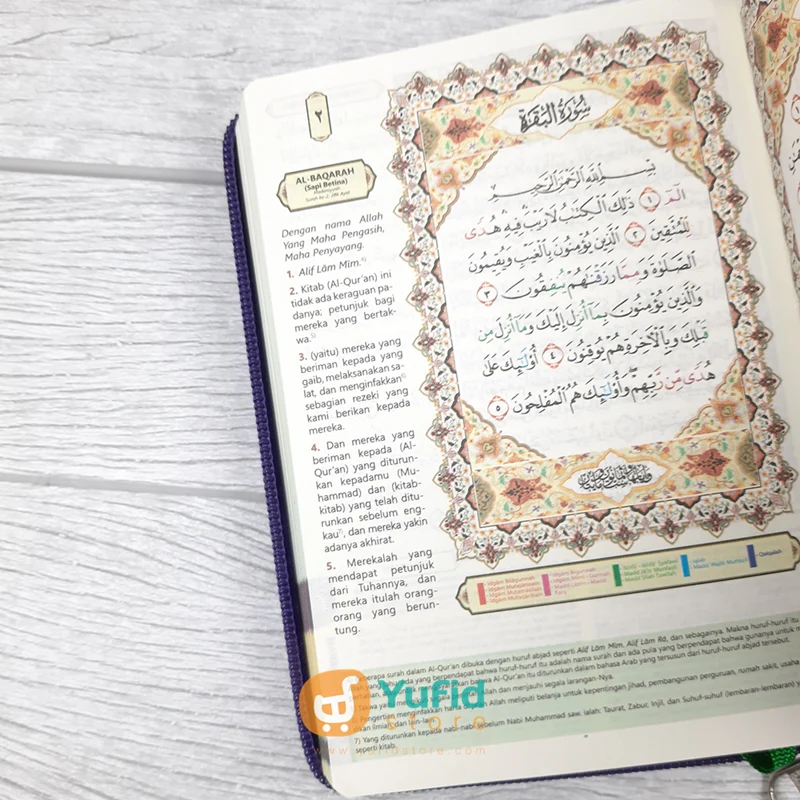 ٢
AL-BAQARAH
(Sapi Betina)
Madaniyyah
Surah ke-2. 286 Ayat
Dengan nama Allah
Yang Maha Pengasih,
Maha Penyayang.
1. Alif Lām Mīm.
2. Kitab (Al-Qur'an) ini
tidak ada keraguan pa-
danya; petunjuk bagi
mereka yang bertak-
wa.
3. (yaitu) mereka yang
beriman kepada yang
gaib, melaksanakan sa-
lat, dan menginfakkan
sebagian rezeki yang
kami berikan kepada
mereka.
4. Dan mereka yang
beriman kepada (Al-
Qur'an) yang diturun-
kan kepadamu (Mu-
hammad) dan (kitab-
kitab) yang telah ditu-
runkan sebelum eng-
kau⁷⁾, dan mereka yakin
adanya akhirat.
5. Merekalah yang
mendapat petunjuk
dari Tuhannya, dan
mereka itulah orang-
orang yang berun-
tung.
سُورَةُ الْبَقَرَةِ
بِسْمِ اللَّهِ الرَّحْمَٰنِ الرَّحِيمِ
الٓمٓ ١ ذَٰلِكَ الْكِتَٰبُ لَا رَيْبَ فِيهِ هُدًى
لِلْمُتَّقِينَ ٢ الَّذِينَ يُؤْمِنُونَ بِالْغَيْبِ وَيُقِيمُونَ
الصَّلَوٰةَ وَمِمَّا رَزَقْنَٰهُمْ يُنْفِقُونَ ٣
وَالَّذِينَ يُؤْمِنُونَ بِمَآ أُنْزِلَ إِلَيْكَ وَمَآ أُنْزِلَ مِنْ
قَبْلِكَ وَبِالْآخِرَةِ هُمْ يُوقِنُونَ ٤ أُولَٰٓئِكَ عَلَىٰ
هُدًى مِنْ رَبِّهِمْ وَأُولَٰٓئِكَ هُمُ الْمُفْلِحُونَ ٥
Qalqalah
surah dalam Al-Qur'an dibuka dengan huruf abjad seperti Alif Lām Mīm, Alif Lām Rā, dan sebagainya. Makna huruf-huruf itu
yang berpendapat bahwa huruf-huruf itu adalah nama surah dan ada pula yang berpendapat bahwa gunanya untuk
bahwa Al-Qur'an itu diturunkan dalam bahasa Arab yang tersusun dari huruf-huruf abjad tersebut.
dan menjauhi segala larangan-Nya.
Allah meliputi belanja untuk kepentingan jihad, pembangunan perguruan, rumah sakit, usaha
7) Yang diturunkan kepada nabi-nabi sebelum Nabi Muhammad saw. ialah: Taurat, Zabur, Injil, dan Suhuf-suhuf (lembaran-lembaran)
seperti kitab.
Yufid
store
www.yufidstore.com